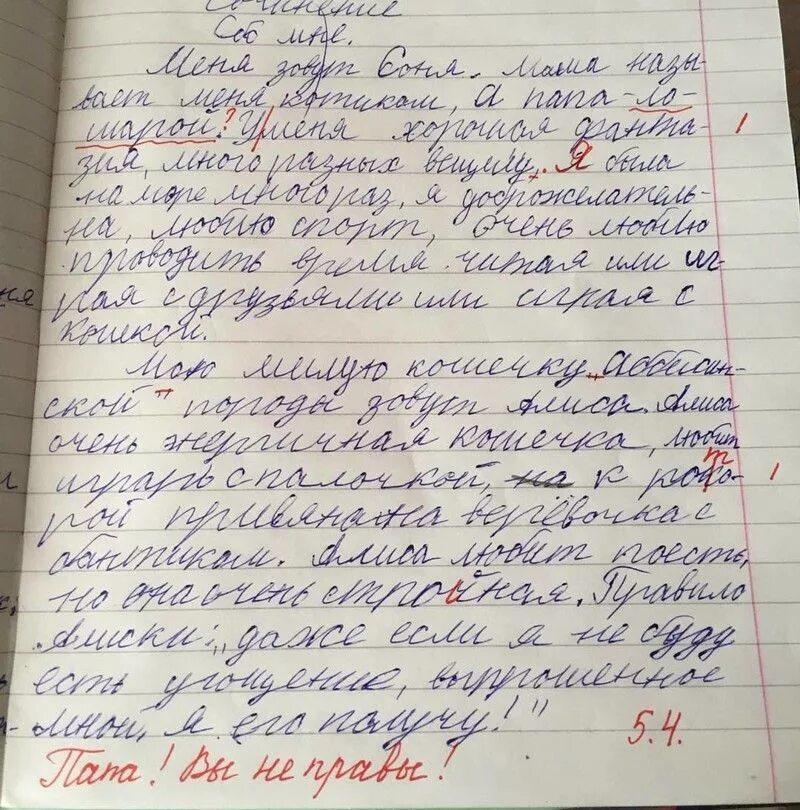 Сочинение
Соб мне.
Меня зовут Соня. Мама назы-
вает меня котиком, а папа - ло-
шарой.? У меня хорошая фанта- 1
зия, много разных вещицу. Я была
на море много раз, я доброжелатель-
на, люблю спорт, очень люблю
проводить время читая или иг-
рая с друзьями или играя с
кошкой.
Мою милую кошечку „Аббесин-
ской" породы зовут Алиса. Алиса
очень энергичная кошечка, любит
играть с палочкой, на к кото- 1
рой привязана верёвочка с
бантиком. Алиса любит поесть,
но она очень стройная. Правило
Алиски: „даже если я не буду
есть угощение, выпрошенное
мной, я его получу!"
5.4.
Папа! Вы не правы!